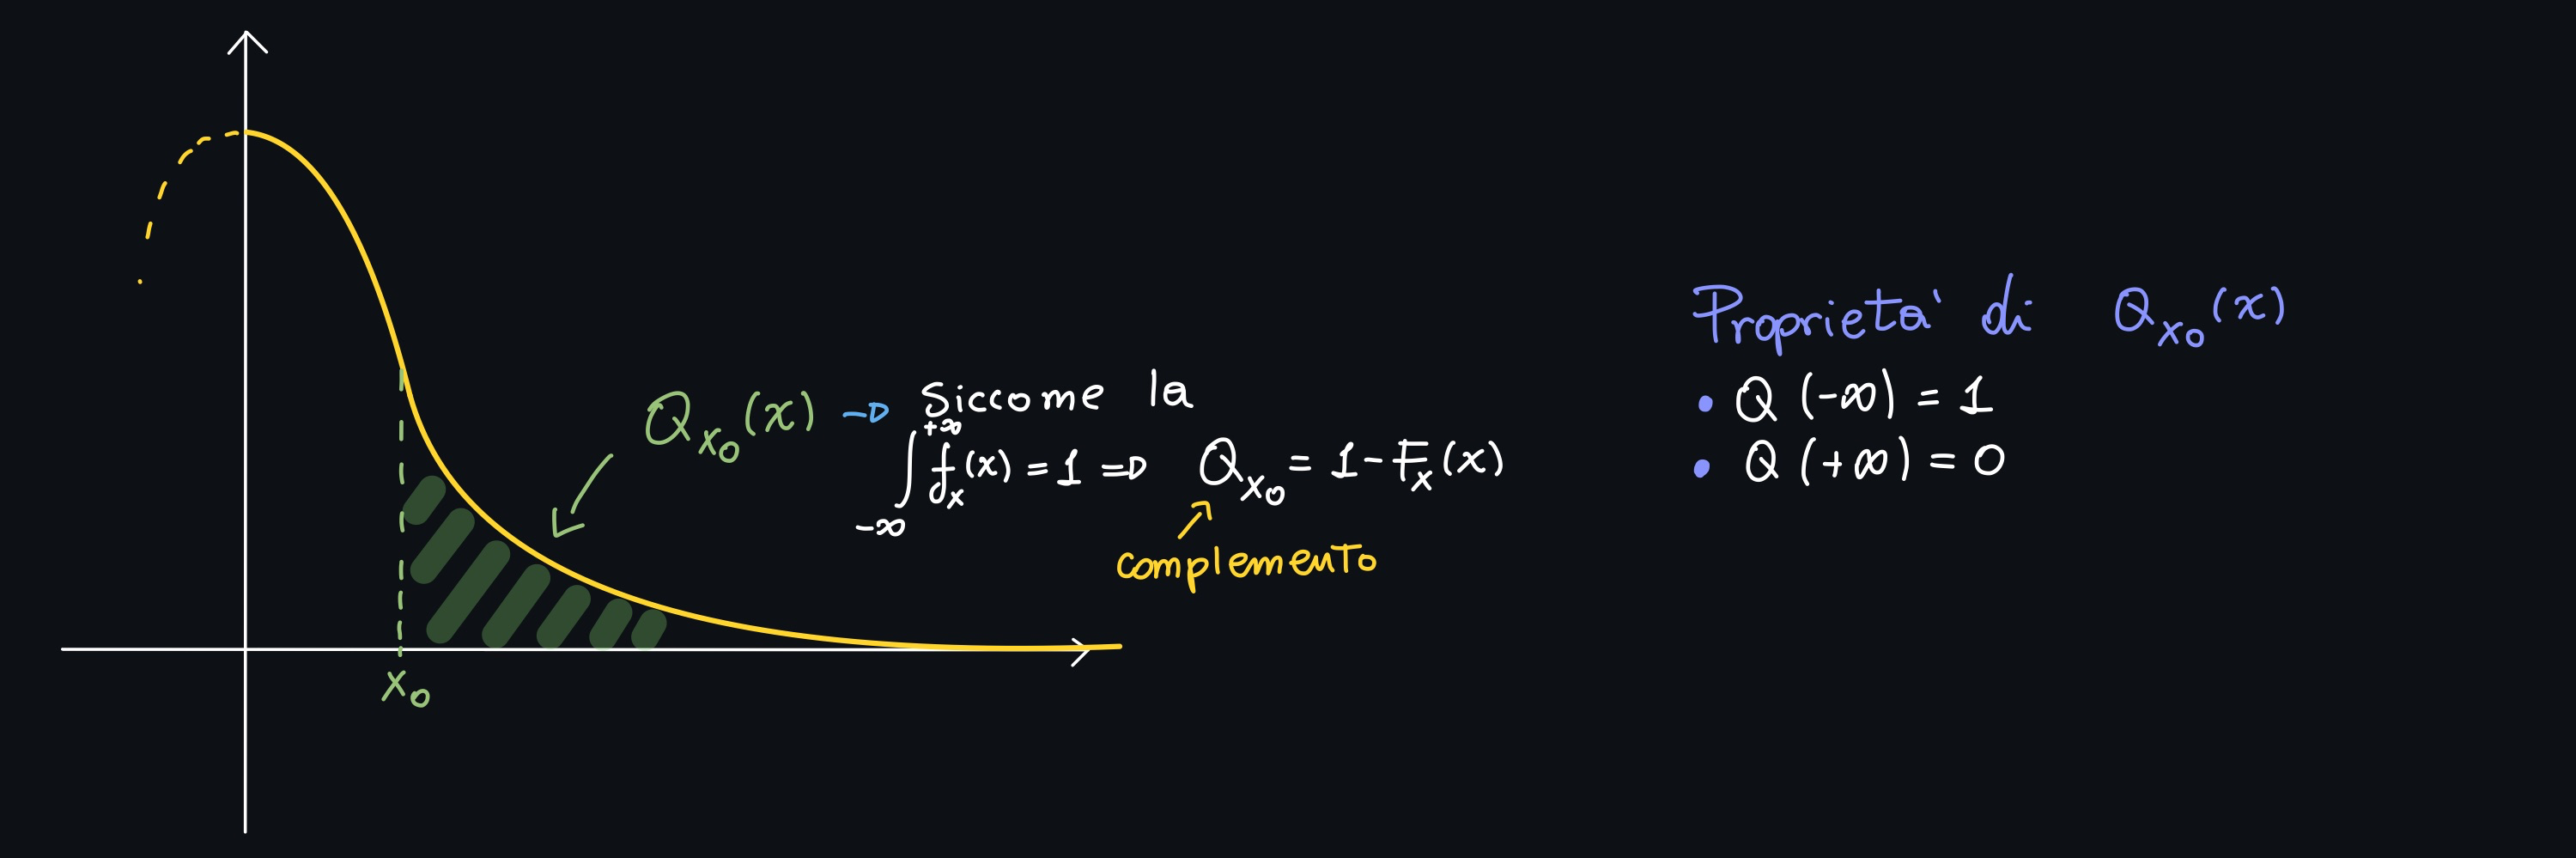 Q_{x_0}(x) → Siccome la
∫_{-∞}^{+∞} f_x(x) = 1 ⇒ Q_{x_0} = 1 - F_x(x)
complemento
x_0
Proprieta' di Q_{x_0}(x)
• Q (-∞) = 1
• Q (+∞) = 0